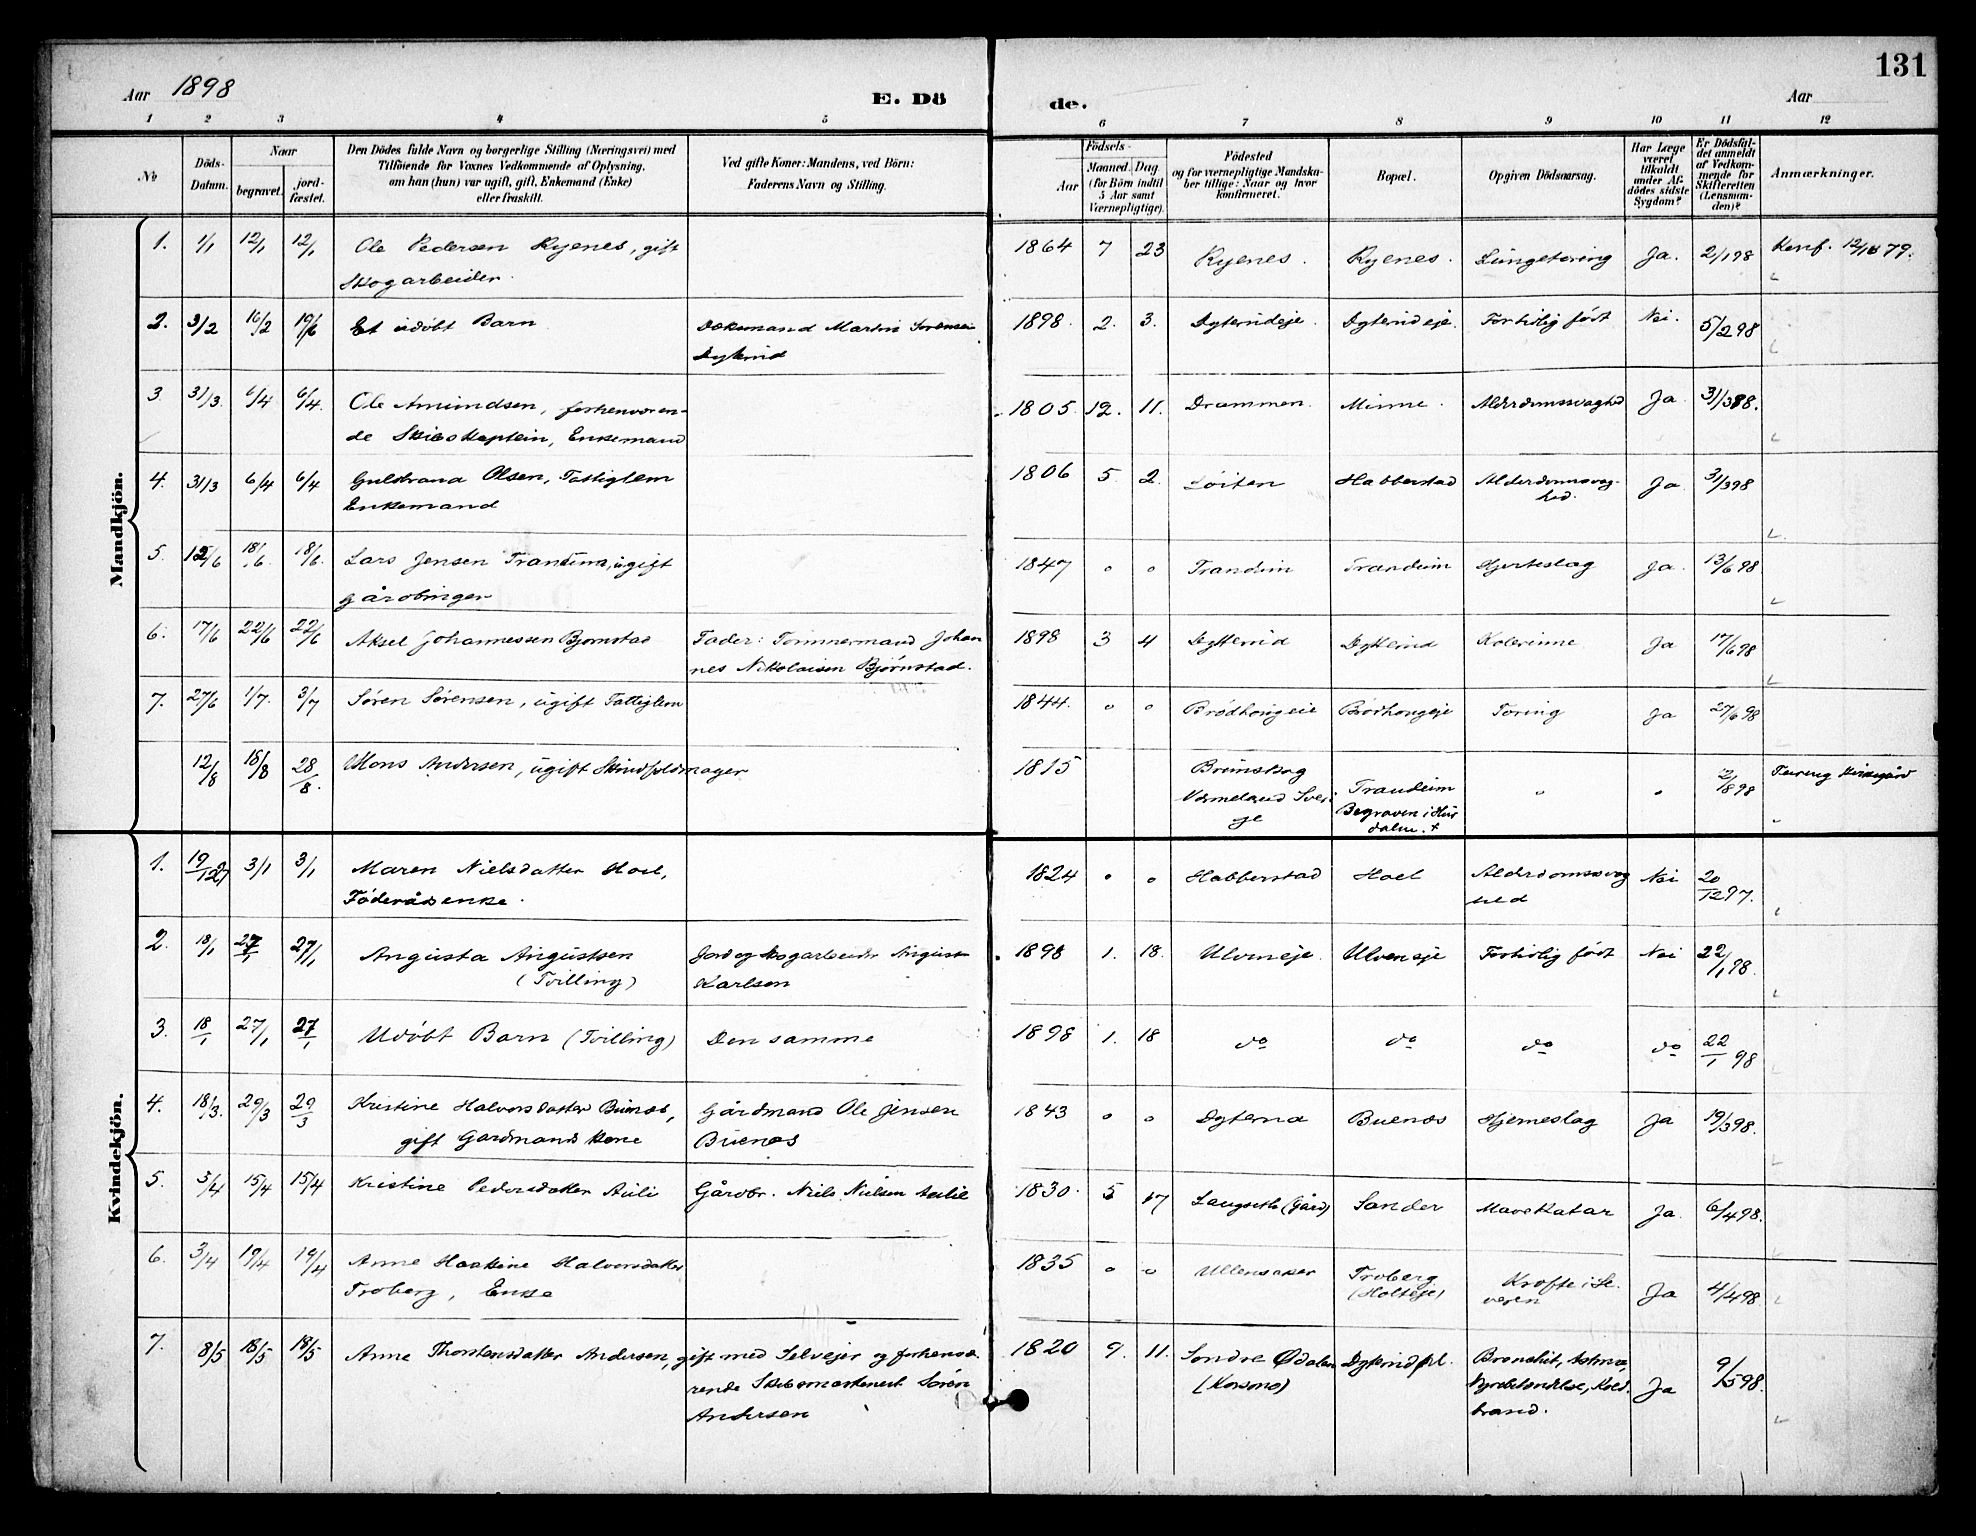 131
Aar 1898
E. Dö
de.
Aar
1 2 3 4 5 6 7 8 9 10 11 12
No
Döds-Datum.
Naar
begravet.
jord-fæstet.
Den Dödes fulde Navn og borgerlige Stilling (Næringsvei) med
Tilföiende for Voxnes Vedkommende af Oplysning,
om han (hun) var ugift, gift, Enkemand (Enke)
eller fraskilt.
Ved gifte Koner: Mandens, ved Börn:
Faderens Navn og Stilling.
Födsels-
Aar
Maaned. Dag.
(for Börn indtil
5 Aar samt
Værnepligtige).
Födested
og for værnepligtige Mandska-
ber tillige: Naar og hvor
konfirmeret.
Bopæl.
Opgiven Dödsaarsag.
Har Læge
været
tilkaldt
under Af-
dödes sidste
Sygdom?
Er Dödsfal-
det anmeldt
af Vedkom-
mende for
Skifteretten
(Lensman-
den)?
Anmærkninger.
Mandkjön.
1. 1/1 12/1 12/1 Ole Pedersen Ryenes, gift 1864 7 23 Ryenes. Ryenes. Lungetæring Ja. 2/1 98 Konf. 12/10 79.
Skogarbeider.
2. 3/2 16/2 19/6 Et udøbt Barn 1898. 2. 3. Dyterudeje. Dyterudeje. Fortidlig født Nei. 5/2 98
3 31/3 6/4 6/4. Ole Amundsen, forhenværen- 1805. 12. 11. Drammen. Minne. Alderdomssvaghed Ja 31/3 98.
de Skibskaptein, Enkemand
4. 31/3 6/4 6/4 Guldbrand Olsen, Fattiglem 1806 5 2. Løiten Habberstad Alderdomssvag-
hed. Ja 31/3 98
Enkemand
5. 12/6 18/6. 18/6. Lars Jensen ugift 1847 0 0 Hjerteslag Ja. 13/6 98
gårdbruger
6. 17/6 22/6 22/6 Aksel Johannessen Bjørnstad Fader: Tømmermand Johan 1898 3 4 Dytterud Dytterud Kolerinne Ja 17/6 98
nes Nikolaisen Bjørnstad.
7. 27/6 1/7. 3/7 Søren Sørensen, ugift Fattiglem 1844. 0 0 Tæring Ja 27/6 98
12/8 18/8 28/8. Mons Andersen, ugift 1815 Brunskog
Vermeland Sveri
ge
Trandum
Begraven i Hur
dalen. +
Kvindekjön.
1. 19/12 97 3/1 3/1 Maren Nielsdatter Hoel, 1824 0 0 Habberstad Hoel Alderdomssvag
hed Nei 20/12 97.
Føderådsenke.
2. 18/1 27/1 27/1 Augusta Augustsen Jord og skogarbeider August 1898 1. 18. Ulveneje. Ulveneje Fortidlig født Nei 22/1 98.
(Tvilling) Karlsen
3. 18/1 27/1 27/1 Udøbt Barn (Tvilling) Den samme 1898 1. 18 do do do do 22/1 98
4. 18/3. 29/3 29/3 Kristine Halvorsdatter Buenæs, Gårdmand Ole Jensen 1843 0 0 Dyterud Buenæs Hjerneslag Ja 19/3 98.
gift Gardmands kone Buenæs
5. 3/4 15/4 15/4 Kristine Pedersdatter Auli Gårdbr. Niels Nielsen Aulie 1830. 5 17 Langseth (Gård) Sander Mavekatar Ja. 6/4 98.
6. 3/4 19/4 19/4 Anne Halvorsdatter 1835 0 0 Ullensaker Troberg
(Holteje)
Kræfte i Le-
veren Ja 4/4 98
Troberg, Enke
7. 8/5 18/5 18/5 Anne Thorstensdatter Andersen, gift med Selveier og forhenvæ- 1820 9. 11. Søndre Ødalen Dyterud pl. Bronchit, Astma,
rende Søren (Korsmo) Nyrebetændelse, Kold-
Andersen brand. Ja 9/5 98.